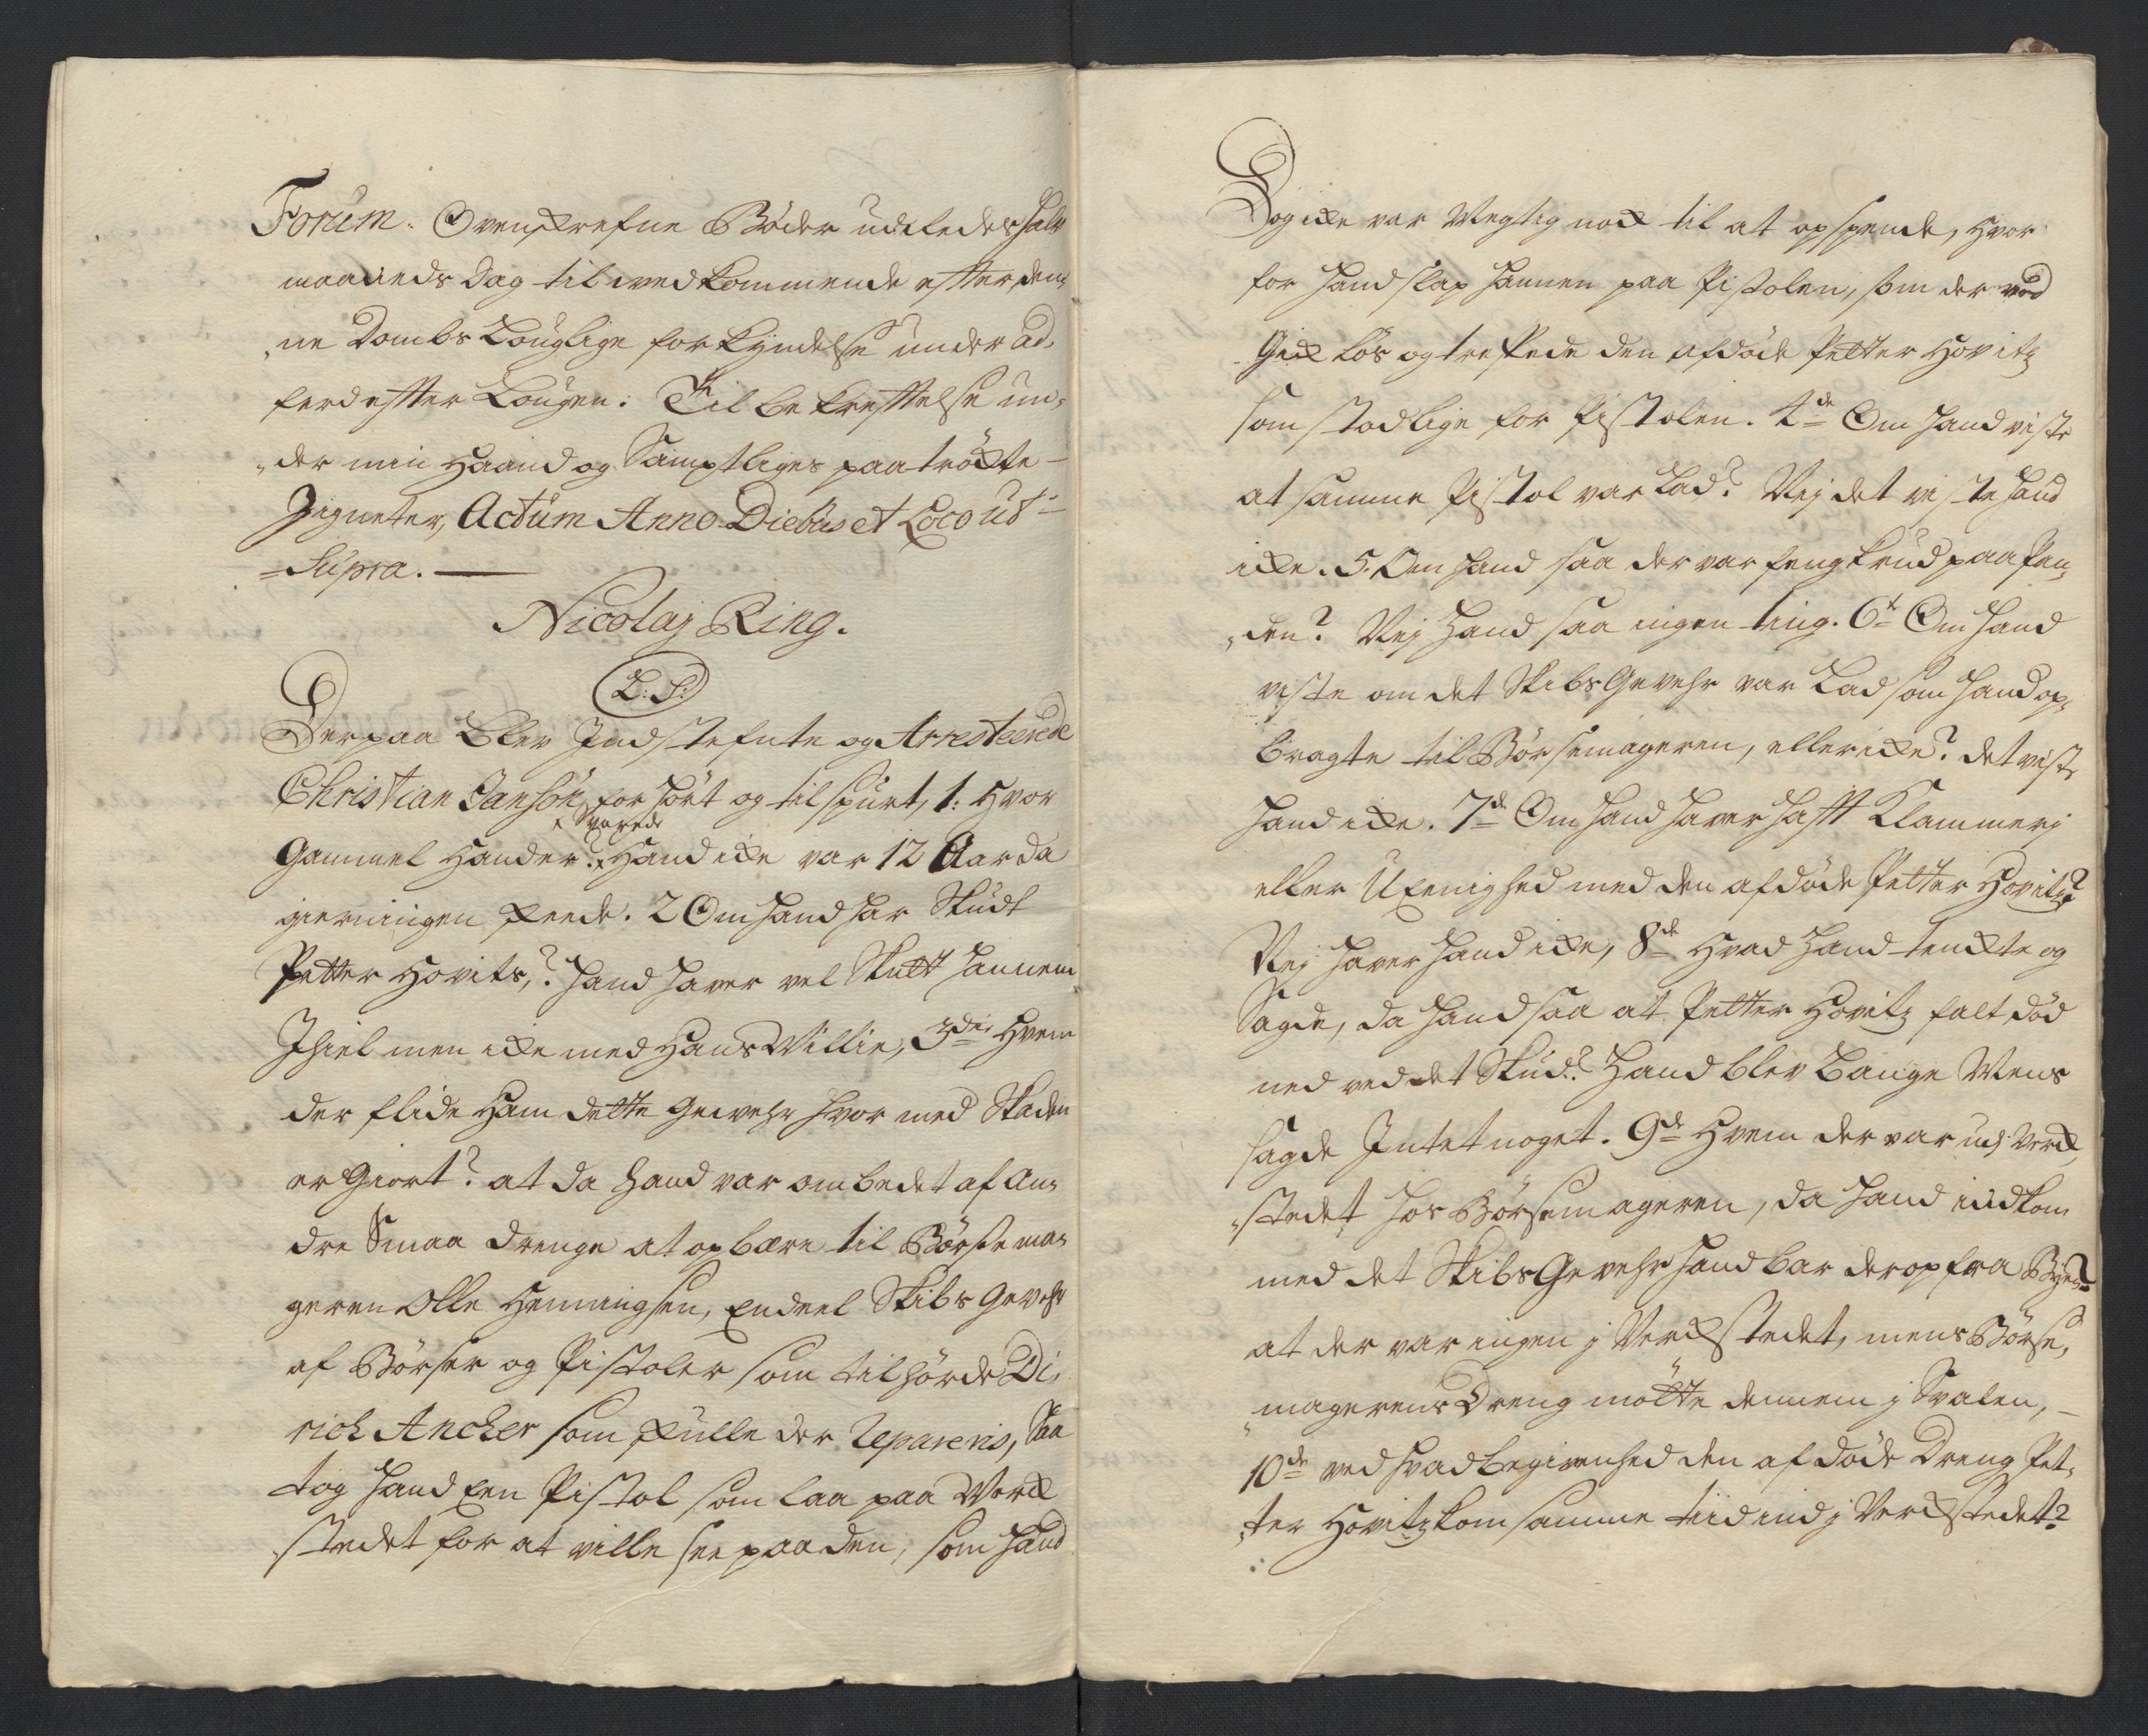 Forum. Ovenskrefne Böder udelædes halv
maaneds Dag til ved kommende efter den,
„ne Dombs Louglige forkyndelse under ad,
ferd efter Lougen. Til bekreftelse un,
„der min Haand og Samptliges paatrökte
Zigneter, Actum Anno Diebus et Loco ut
=Supra.
Nicolaj Ring.
L: S:
Derpaa blev Indstefnte og Arresteerede
Christian Jansön, forhört og tilspurt, 1: Hvor
Svarede
Gammel Hand er? Hand icke var 12 Aar da
gierningen skeede. 2 Om hand har Skudt
Petter Hovits,? hand haver vel Skutt hannem
Ihiel men icke med Hans Willie, 3die Hvem
der flide Ham dette Gewehr hvor med Skaden
er Giort? at da hand var ombedet af An,
dre Smaa Drenge at opbære til Börse ma,
geren Olle Hemmingsen, Endeel Skibs Gevehr
af Börser og Pistoler som tilhörde Di,
rich Ancher som skulle der Repareris, Saa
tog hand Een Pistol som laa paa Werck
stedet for at ville see paa den, som hand
Dog icke var Megtig nock til at opspende, hvor
for hand slap hannen paa Pistolen, som der ved
Gick lös og treffede den afdöde Petter Hovitz
som stod lige for Pistolen. 4de Om hand viste
at samme Pistol var Lad? Nej det viste hand
icke. 5. Om hand saa der var fengkrud paa Pan,
„den? Nej Hand saa ingen ting. 6te Om hand
viste om det Skibs Gevehr var Lad som hand op,
bragte til Börsemageren, eller icke? det viste
hand icke. 7de Om hand haver hafft Klammerj
eller Uenighed med den afdöde Petter Hovitz?
Nej haver hand icke, 8de Hvad Hand tenckte og
Sagde, da hand saa at Petter Hovitz falt död
ned ved det Skud? Hand blev bange Mens
sagde Intet noget. 9de Hvem der var udj Verck,
„stedet hos Börsemageren, da hand indkom
med det Skibs Gevehr hand bar derop fra Byen?
at der var ingen j Verckstedet, mens Börse,
„magerens Dreng mötte dennem j Svalen,
10de ved hvad begivenhed den afdöde Dreng Pet,
„ter Hovitz kom samme tiid ind j Verckstedet?